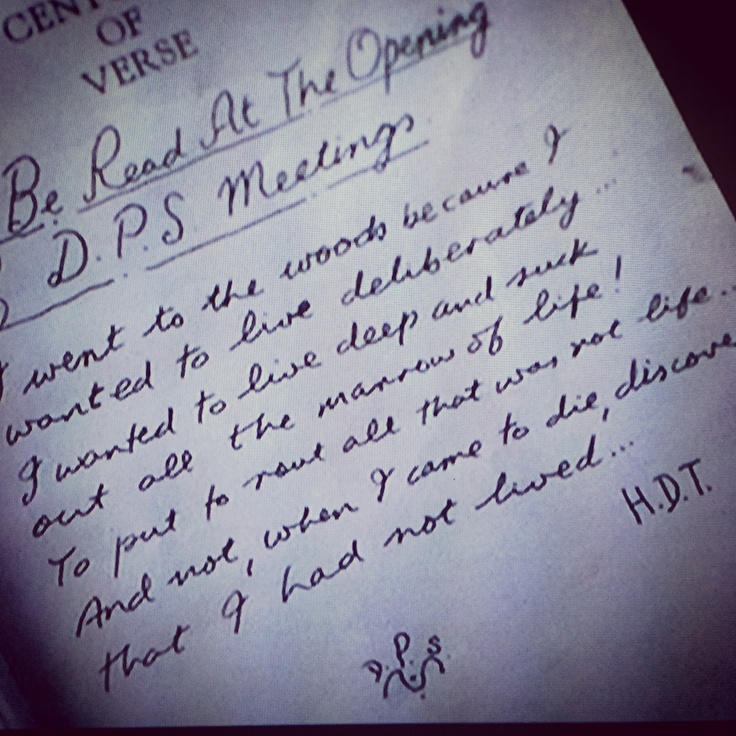 OF
VERSE
Be Read At The Opening
D.P.S. Meetings
I went to the woods because I
wanted to live deliberately...
I wanted to live deep and suck
out all the marrow of life!
To put to rout all that was not life..
And not, when I came to die, discove
that I had not lived...
H.D.T.
D.P.S.